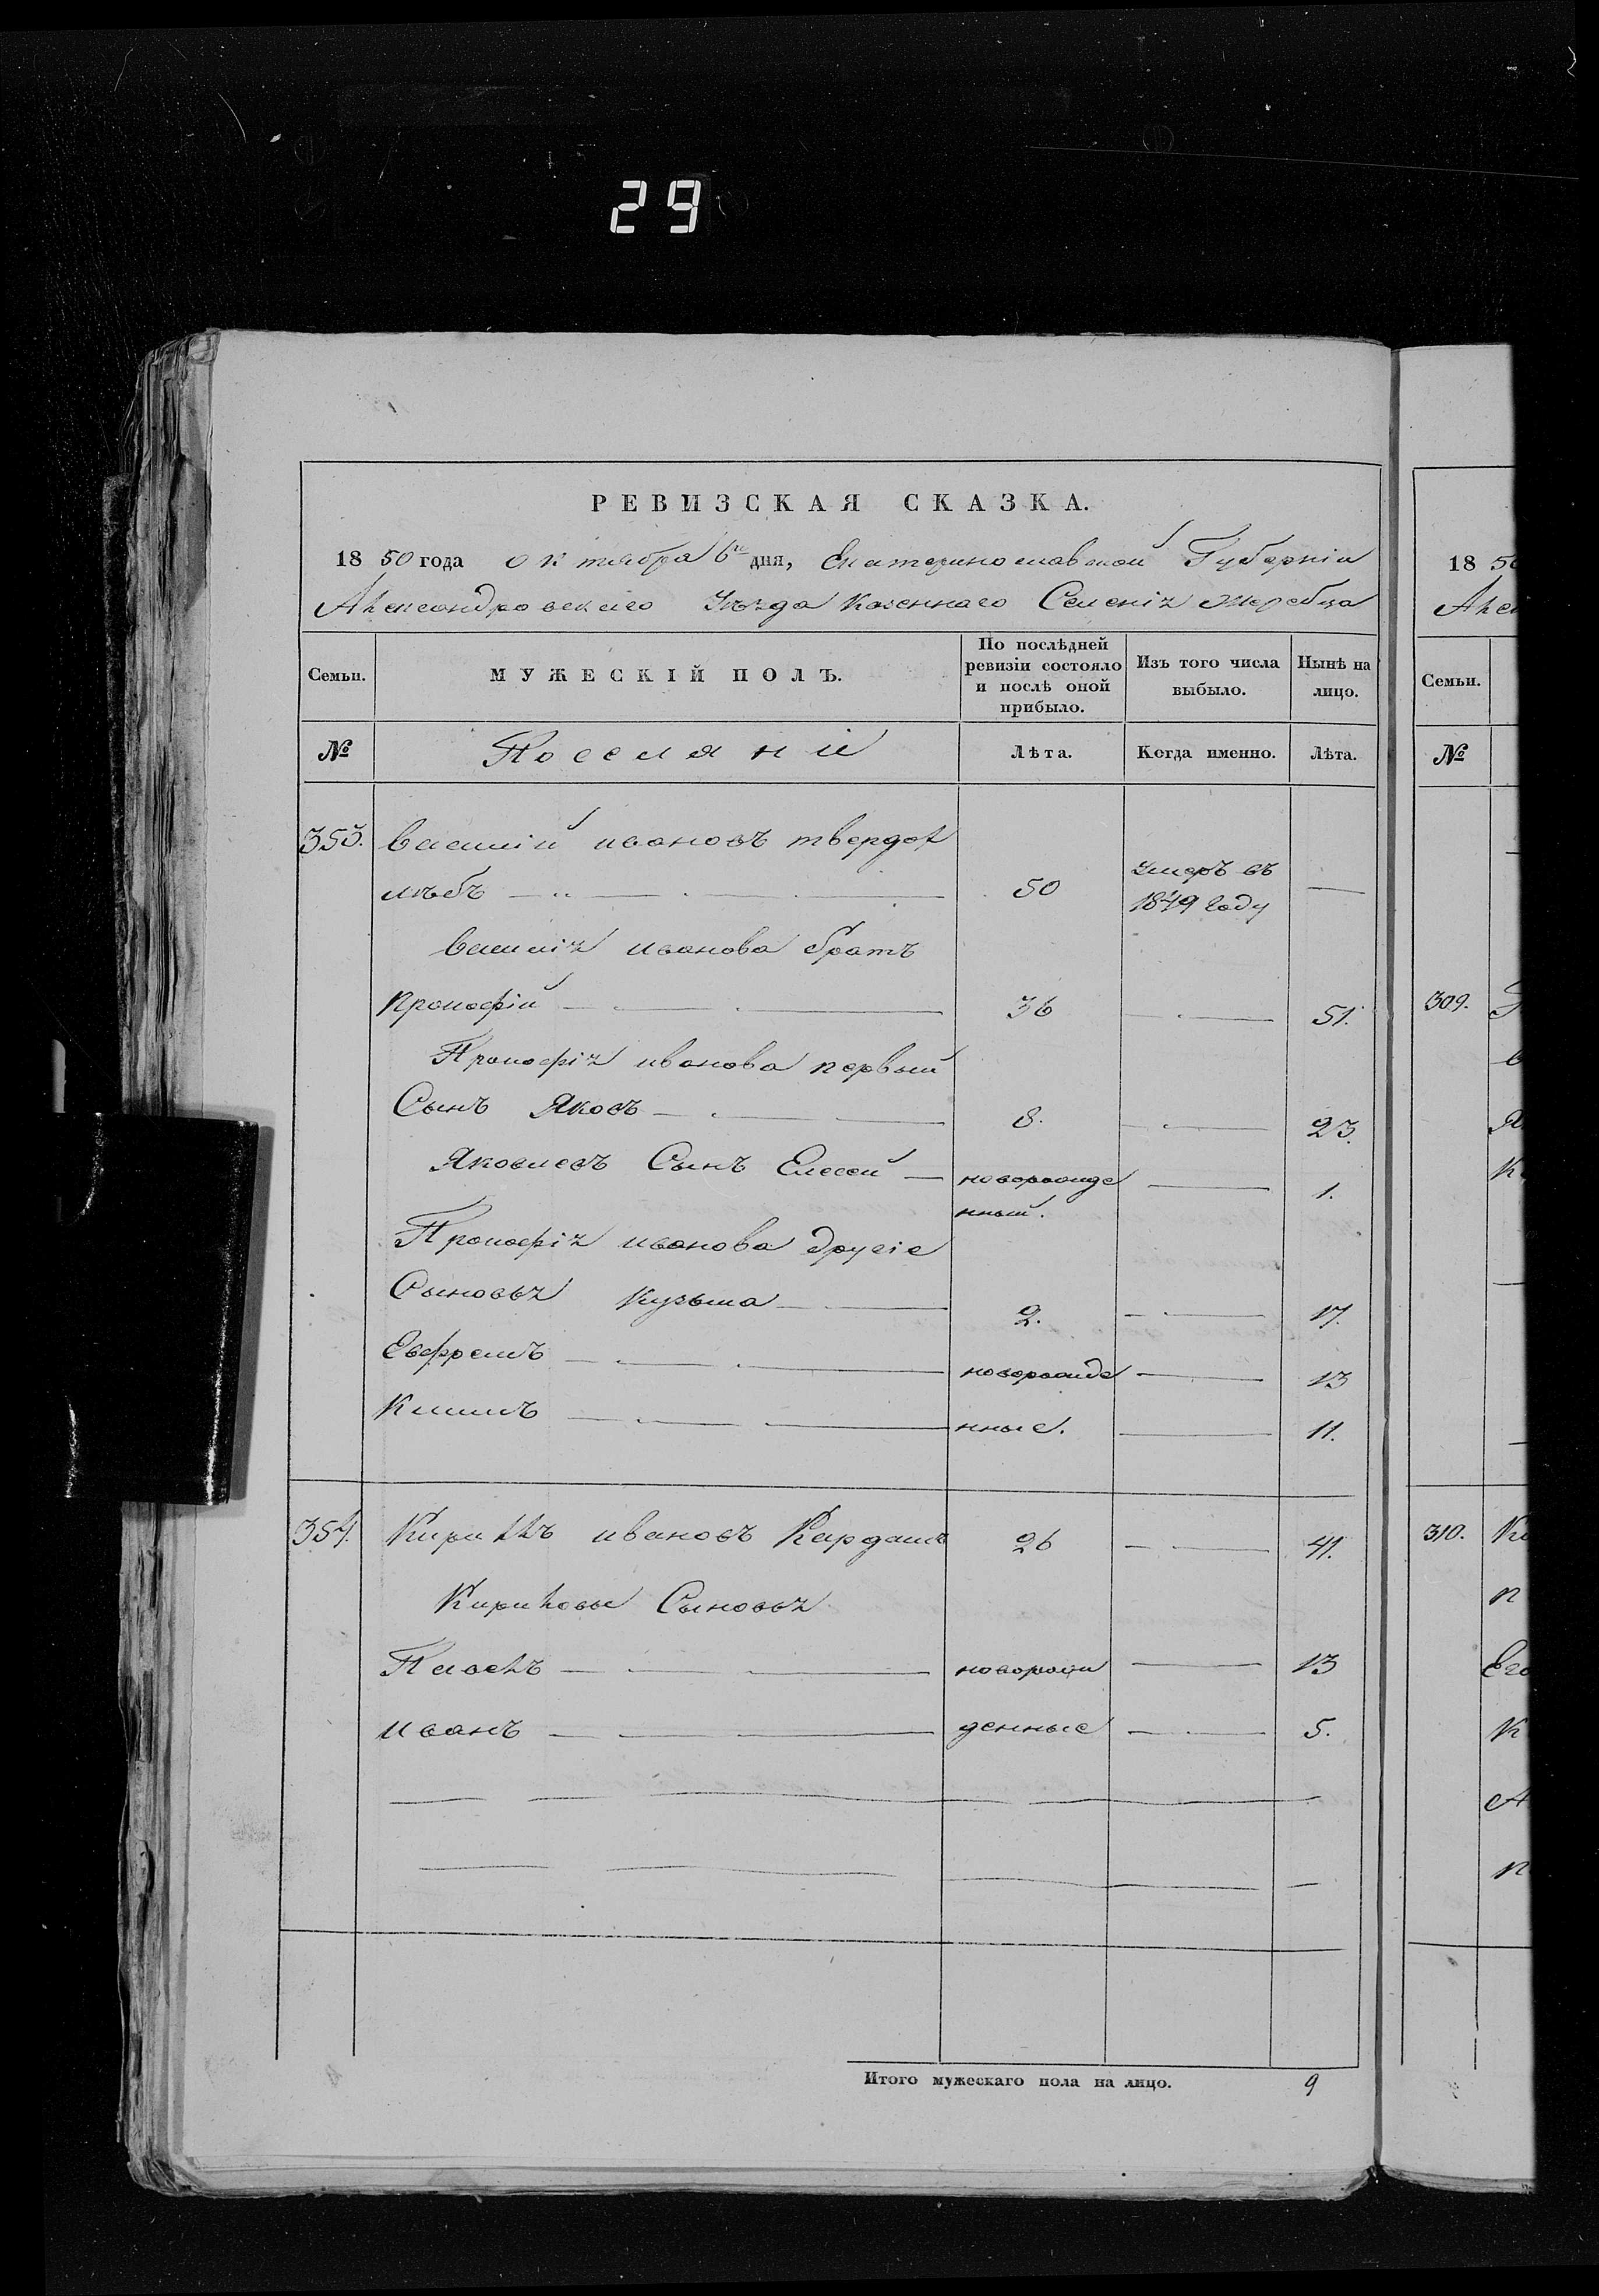 29
РЕВИЗСКАЯ СКАЗКА.
18 50 года октября 6го дня, Екатеринославской Губерніи
Александровскаго Уѣзда Казеннаго Селенія Жеребца
Семьи.
МУЖЕСКІЙ ПОЛЪ.
По послѣдней ревизіи состояло и послѣ оной прибыло.
Изъ того числа выбыло.
Нынѣ на лицо.
№
Поселяни
Лѣта.
Когда именно.
Лѣта.
353. Василій Ивановъ Твердох
лѣбъ 50 умеръ въ 1849 году —
Василія Иванова братъ
Прокофій 36 — 51.
Прокофія Иванова первый
Сынъ Яковъ 8. — 23.
Яковлевъ Сынъ Елесей новорожде нный. — 1.
Прокофія Иванова другіе
Сыновья Кузьма 2. — 17.
Евфремъ новорожде — 13
Климъ нные. — 11.
354. Кирикъ Ивановъ Кардашъ 26 — 41.
Кириковы Сыновья
Павелъ новорож — 13
Иванъ денные — 5.
Итого мужескаго пола на лицо. 9
18 50
Але
Семьи.
№
309.
310.